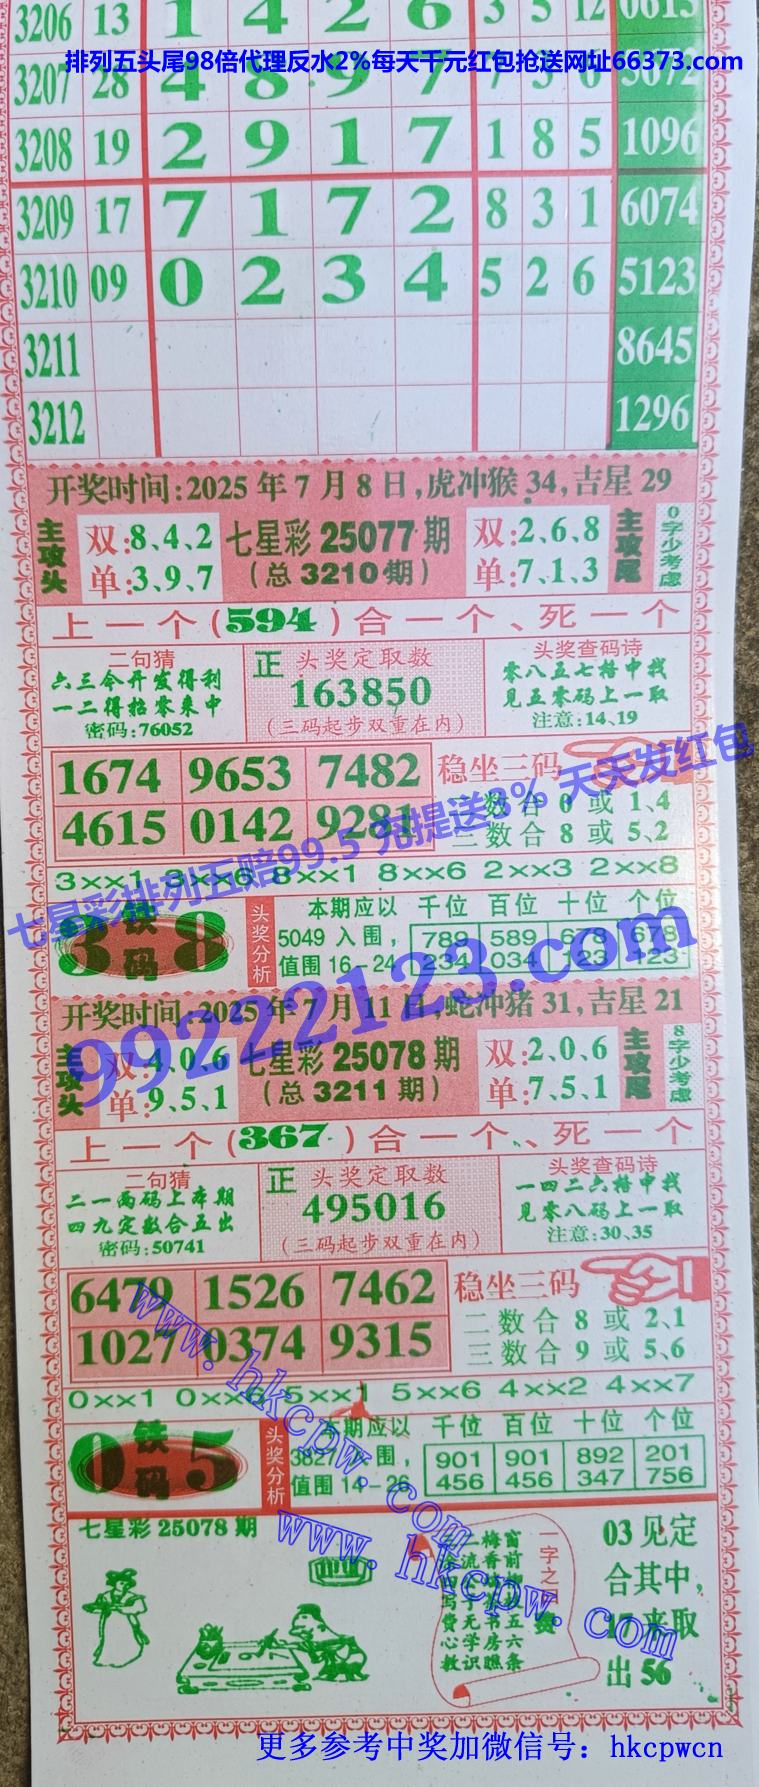 3206 13 1 4 2 6 3 5 12 0615
排列五头尾98倍代理反水2%每天千元红包抢送网址66373.com
3207 28 4 8 9 7 7 5 6 5072
3208 19 2 9 1 7 1 8 5 1096
3209 17 7 1 7 2 8 3 1 6074
3210 09 0 2 3 4 5 2 6 5123
3211 8645
3212 1296
开奖时间:2025年7月8日,虎冲猴34,吉星29
主攻头
双:8、4、2
单:3、9、7
七星彩25077期
(总3210期)
双:2、6、8
单:7、1、3
主攻尾
0字少考虑
上一个(594)合一个、死一个
二句猜
六三令开发得利
一二得拾零来中
密码:76052
正 头奖定取数
163850
(三码起步双重在内)
头奖查码诗
零八五七格中找
见五零码上一取
注意:14、19
1674 9653 7482
4615 0142 9281
稳坐三码
二数合0或1、4
三数合8或5、2
3××1 3××6 8××1 8××6 2××3 2××8
七星彩排列五赔99.5 充提送3% 天天发红包
3 铁码 8
头奖分析
本期应以 千位 百位 十位 个位
5049入围, 789 589 678 678
值围16-24 234 034 123 123
99222123.com
开奖时间:2025年7月11日,蛇冲猪31,吉星21
主攻头
双:4、0、6
单:9、5、1
七星彩25078期
(总3211期)
双:2、0、6
单:7、5、1
主攻尾
8字少考虑
上一个(367)合一个、死一个
二句猜
二一两码上本期
四九定数合五出
密码:50741
正 头奖定取数
495016
(三码起步双重在内)
头奖查码诗
一四二六格中找
见零八码上一取
注意:30、35
6479 1526 7462
1027 0374 9315
稳坐三码
二数合8或2、1
三数合9或5、6
0××1 0××6 5××1 5××6 4××2 4××7
0 铁码 5
头奖分析
本期应以 千位 百位 十位 个位
3827入围, 901 901 892 201
值围14-26 456 456 347 756
www.hkcpw.com
www.hkcpw.com
七星彩25078期
一字之
窗前
五六条
梅香
书房瞧
流
无学识
写
费心教
03见定
合其中,
17来取
出56
更多参考中奖加微信号：hkcpwcn